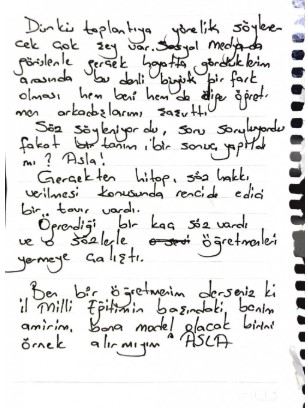 Dünkü toplantıya yönelik söylene-
cek çok şey var. Sosyal medyada
görülenle gerçek hayatta gördüklerim
arasında bu denli büyük bir fark
olması hem beni hem de diğer öğret-
men arkadaşlarımı şaşırttı.
Söz söyleniyordu, soru soruluyordu
fakat bir tanım, bir sonuç yapıldı
mı? Asla!
Gerçekten hitap, söz hakkı
verilmesi konusunda rencide edici
bir tavır vardı.
Öğrendiği bir kaç söz vardı
ve o sözlerle öğretmenleri
yermeye çalıştı.
Ben bir öğretmenim derseniz ki
il Milli Eğitimin başındaki benim
amirim, bana model olacak birini
örnek alır mıyım "ASLA